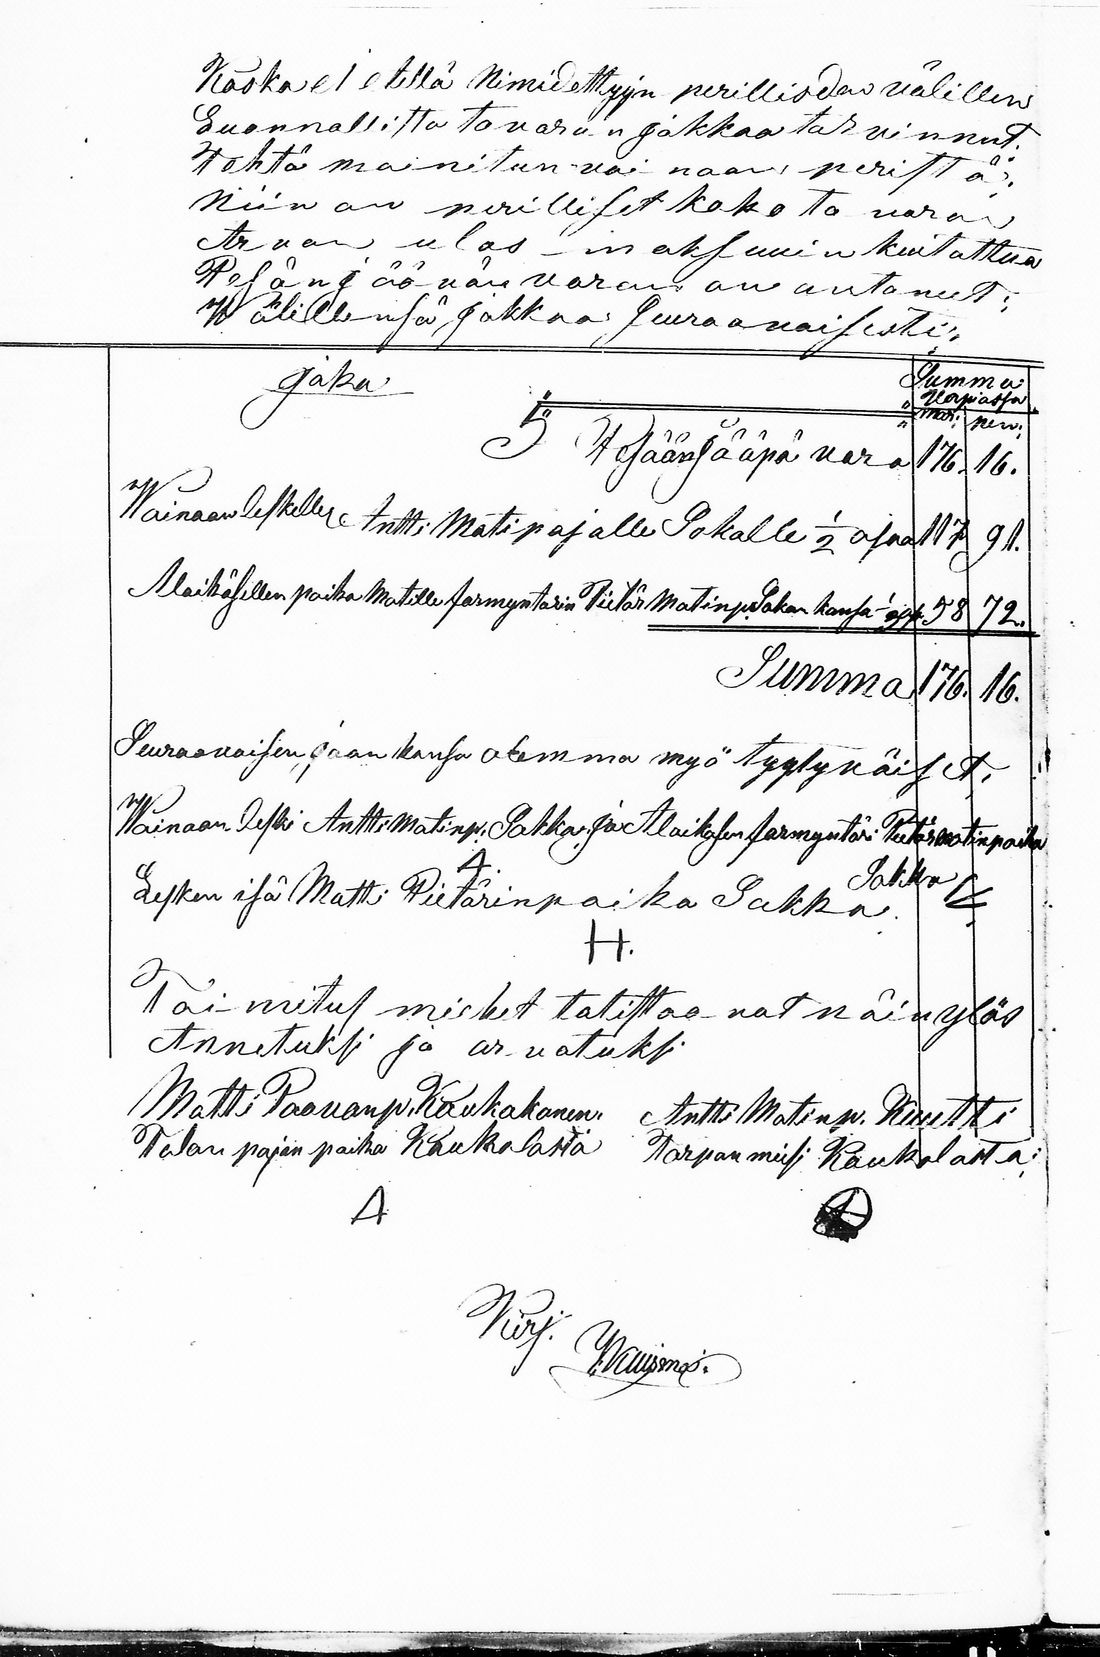 Koska ei etellä Nimidettyjn perillisden välillen
Luonnallista tavaran jakkoa tarvinnut.
Tehtä mainitun vainaan peristä:,
Niin on perilliset koko tavaran
Arvon ulos maksuin kuitattua
Pesän jäävän varan on antanut;
Wälillensä jakkoa seuraavaisesti:,
Jako
Summa
Verpassa
mar: pen:
5 Pesään jääpä vara 176. 16.
Wainaan leskelle Antti Matipajalle Sokalle 1/2 osaa 117 91.
Alaikäsellen poika Matille farmyntarin Pietär Matinp. Sakan kansa 58 72.
Summa 176. 16.
Seuraavaisen jaan kansa olemma myö tyytyväiset;
Wainaan leski Antti Matinp. Sakka. ja Alaikäsen farmyntäri Pietär Matinpoika
Sakka
Lesken isä Matti Pietärinpoika Sakka.
H.
Toimitus miehet totistaavat näin ylös
Annetuksi ja arvatuksi
Matti Paavanp. Kaukakanen. Antti Matinp. Kuutti
Talan pajan poika Kaukolasta Torpan miesi Kaukolasta;
Kirj.